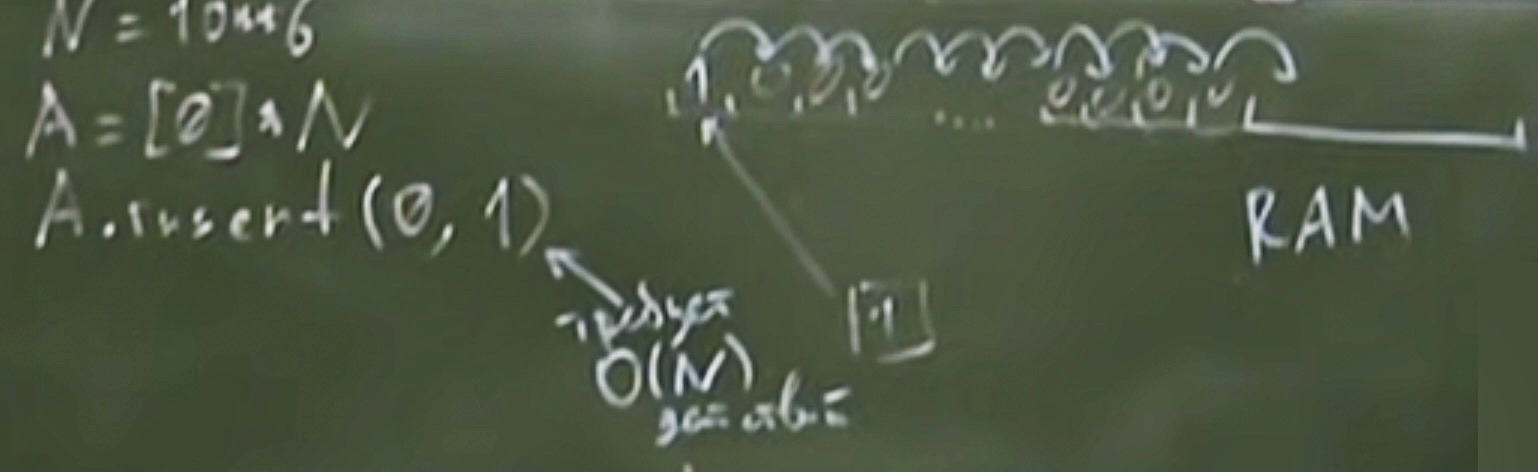 N = 10**6
A = [0] * N
A.insert(0, 1)
требует
O(N)
действий
1 0 0 0 .... 0 0 0 0
RAM
1